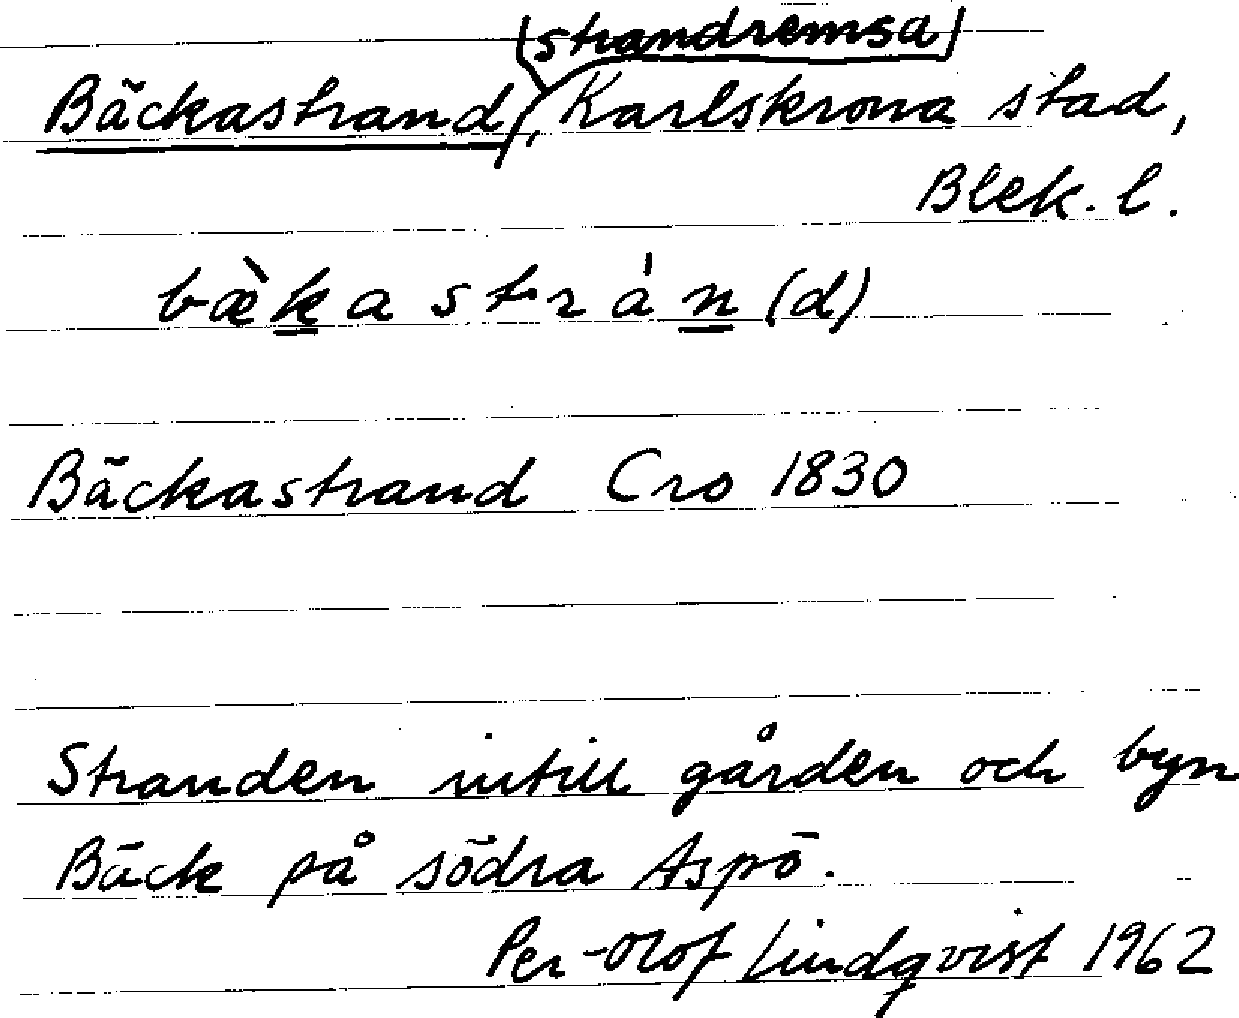 (strandremsa)
Bäckastrand, Karlskrona stad,
Blek. l.
bæ̀kastrán(d)
Bäckastrand Cro 1830
Stranden intill gården och byn
Bäck på södra Aspö.
Per-Olof Lindqvist 1962